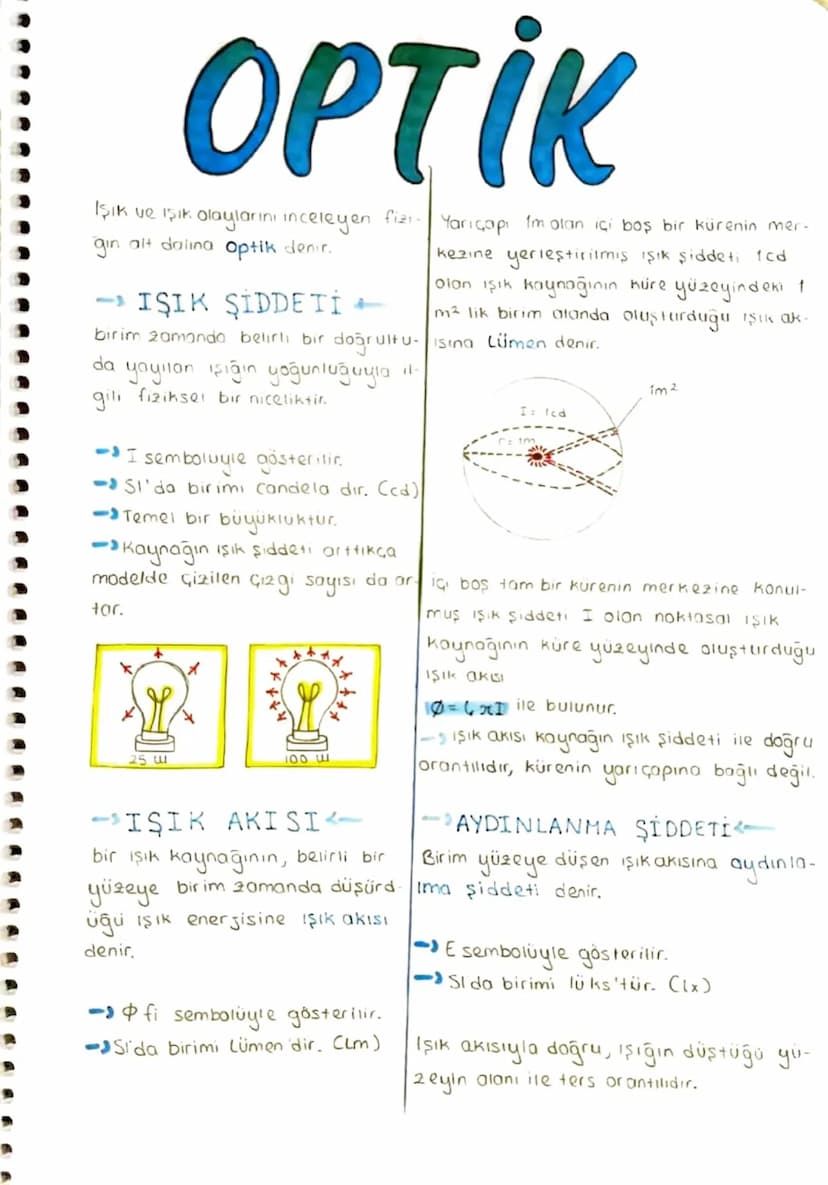 OPTİK
Işık ve ışık olaylarını inceleyen fizi-
ğin alt dalına optik denir.
IŞIK ŞİDDETİ
birim zamanda belirli bir doğrultu-
da yayılan ışığın yoğunluğuyla il-
gili fiziksel bir niceliktir.
→ I sembolüyle gösterilir.
→ SI'da birimi candela dır. (cd)
→ Temel bir büyüklüktür.
→ Kaynağın ışık şiddeti arttıkça
modelde çizilen çizgi sayısı da ar-
tar.
25 W
100 W
IŞIK AKISI
bir ışık kaynağının, belirli bir
yüzeye birim zamanda düşürd-
üğü ışık enerjisine ışık akısı
denir.
→ Φ fi sembolüyle gösterilir.
→ SI'da birimi Lümen'dir. (Lm)
Yarıçapı 1m olan içi boş bir kürenin mer-
kezine yerleştirilmiş ışık şiddeti 1cd
olan ışık kaynağının küre yüzeyindeki 1
m² lik birim alanda oluşturduğu ışık ak-
ısına Lümen denir.
1m²
I = 1cd
r = 1m
içi boş tam bir kürenin merkezine konul-
muş ışık şiddeti I olan noktasal ışık
kaynağının küre yüzeyinde oluşturduğu
ışık akısı
Φ = 4πI ile bulunur.
→ ışık akısı kaynağın ışık şiddeti ile doğru
orantılıdır, kürenin yarıçapına bağlı değil.
AYDINLANMA ŞİDDETİ
Birim yüzeye düşen ışık akısına aydınla-
nma şiddeti denir.
→ E sembolüyle gösterilir.
→ SI da birimi lüks'tür. (Lx)
Işık akısıyla doğru, ışığın düştüğü yü-
zeyin alanı ile ters orantılıdır.